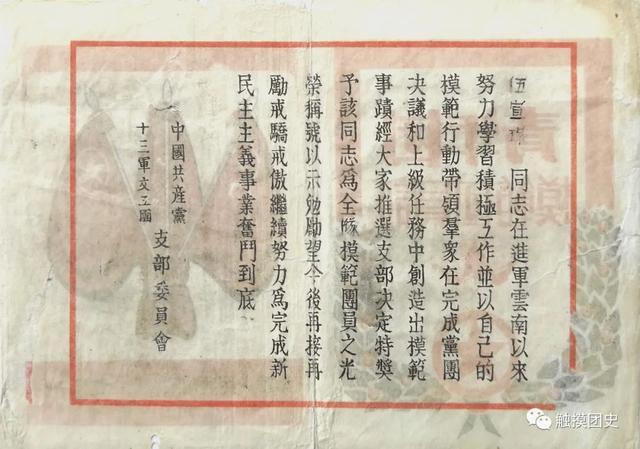 伍宣 同志在進軍雲南以來
努力學習積極工作並以自己的
模範行動帶領羣衆在完成黨團
决議和上級任務中創造出模範
事蹟經大家推選支部决定特獎
予該同志爲全隊模範團員之光
榮稱號以示勉勵望今後再接再
勵戒驕戒傲繼續努力爲完成新
民主主義事業奮鬥到底
中國共産黨
十三軍文工團
支部委員會
触摸团史